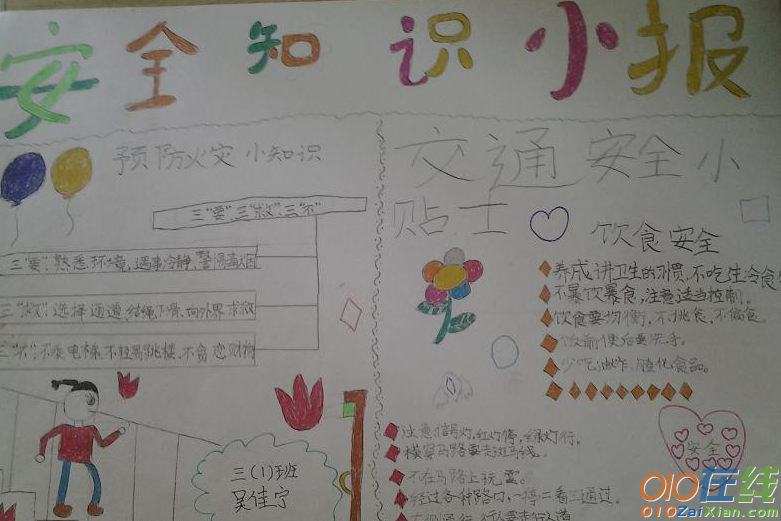 安全知识小报
预防火灾小知识
三“要”、三“救”、三“不”
三“要”：熟悉环境，遇事冷静，警惕毒烟
三“救”：选择通道，结绳下滑，向外界求救
三“不”：不乘电梯、不轻易跳楼、不贪恋财物
三(1)班
吴佳宁
交通安全小
贴士
饮食安全
养成讲卫生的习惯，不吃生冷食
不暴饮暴食，注意适当控制。
饮食要均衡，不挑食，不偏食。
饭前便后要洗手。
少吃油炸、腌化食品。
注意信号灯，红灯停，绿灯行。
横穿马路要走斑马线。
不在马路上玩耍。
经过各种路口，一停二看三通过。
行人要走人行道
安全
010在线
010ZaiXian.com